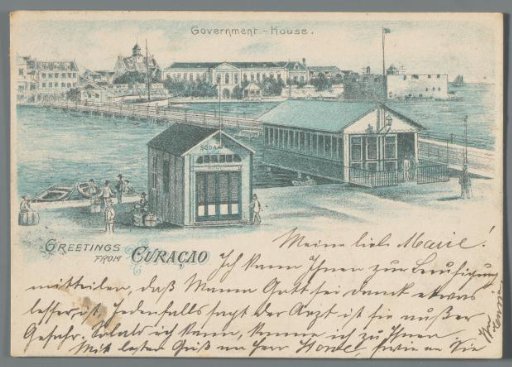 Government-House.
SODA
GREETINGS
FROM CURAÇAO
Meine liebe Marie!
Ich kann Ihnen zur Beruhigung
mitteilen, daß Mama Gott sei Dank etwas
besser ist. Jedenfalls sagt der Arzt ist sie außer
Gefahr. Sobald ich kann, komme ich zu Ihnen.
Mit besten Gruß an Herr sowie an Sie